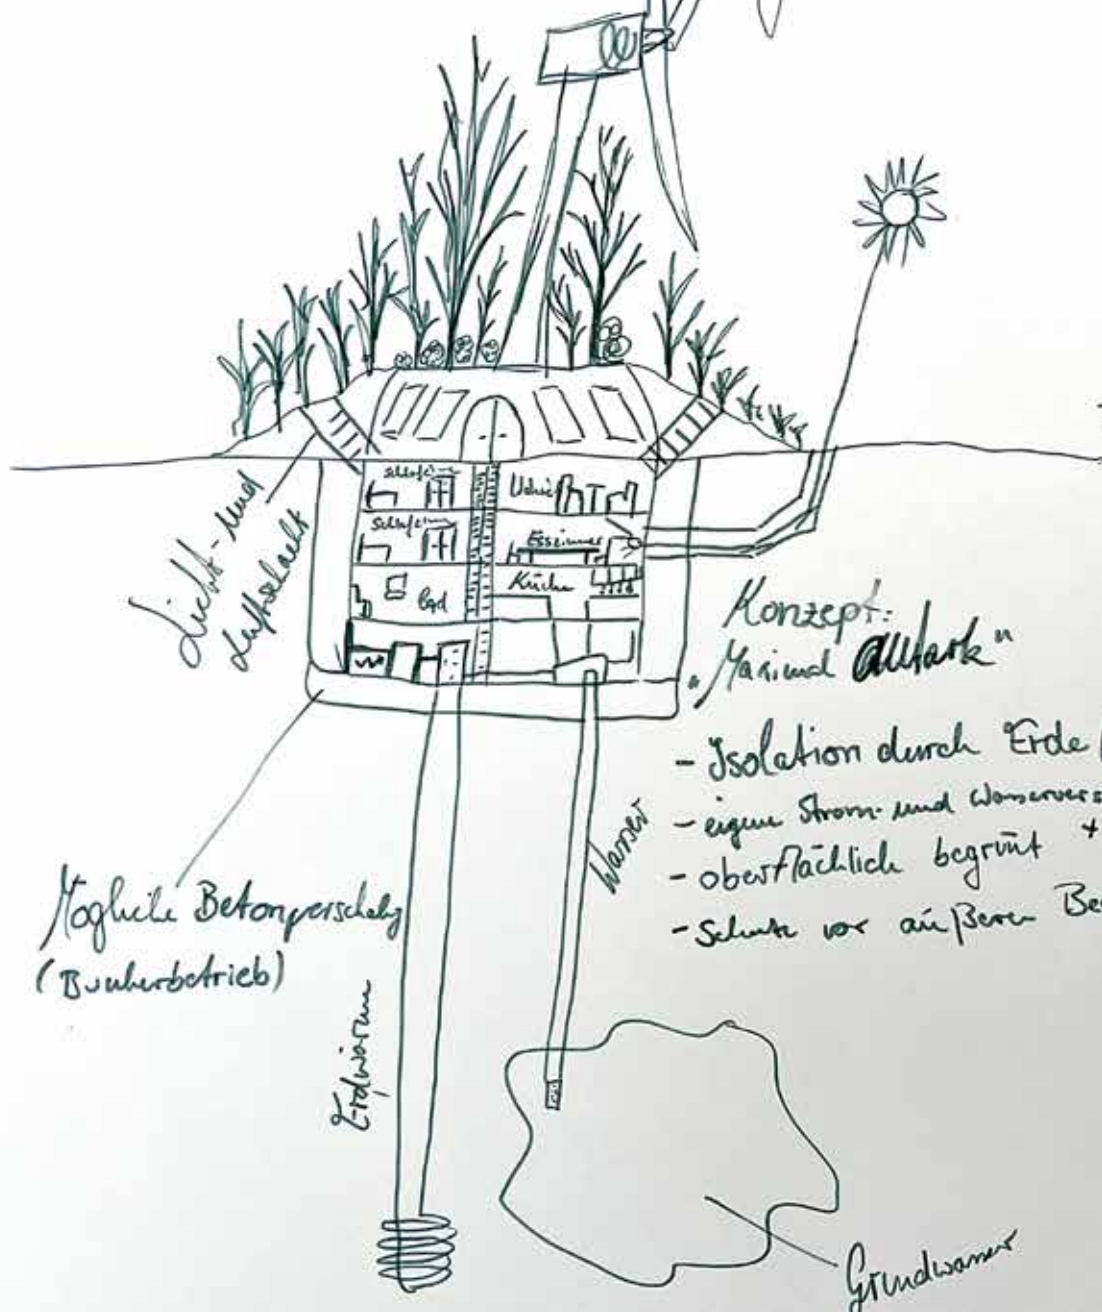 Licht- und
Luftschacht
Schlafzim
Schlafzimm
Bad
Esszimmer
Küche
Konzept:
"Maximal autark"
- Isolation durch Erde
- eigene Strom- und Wasservers
- oberflächlich begrünt +
- Schutz vor äußeren Be
Wasser
Mögliche Betonverschalung
(Bunkerbetrieb)
Erdwärme
Grundwasser